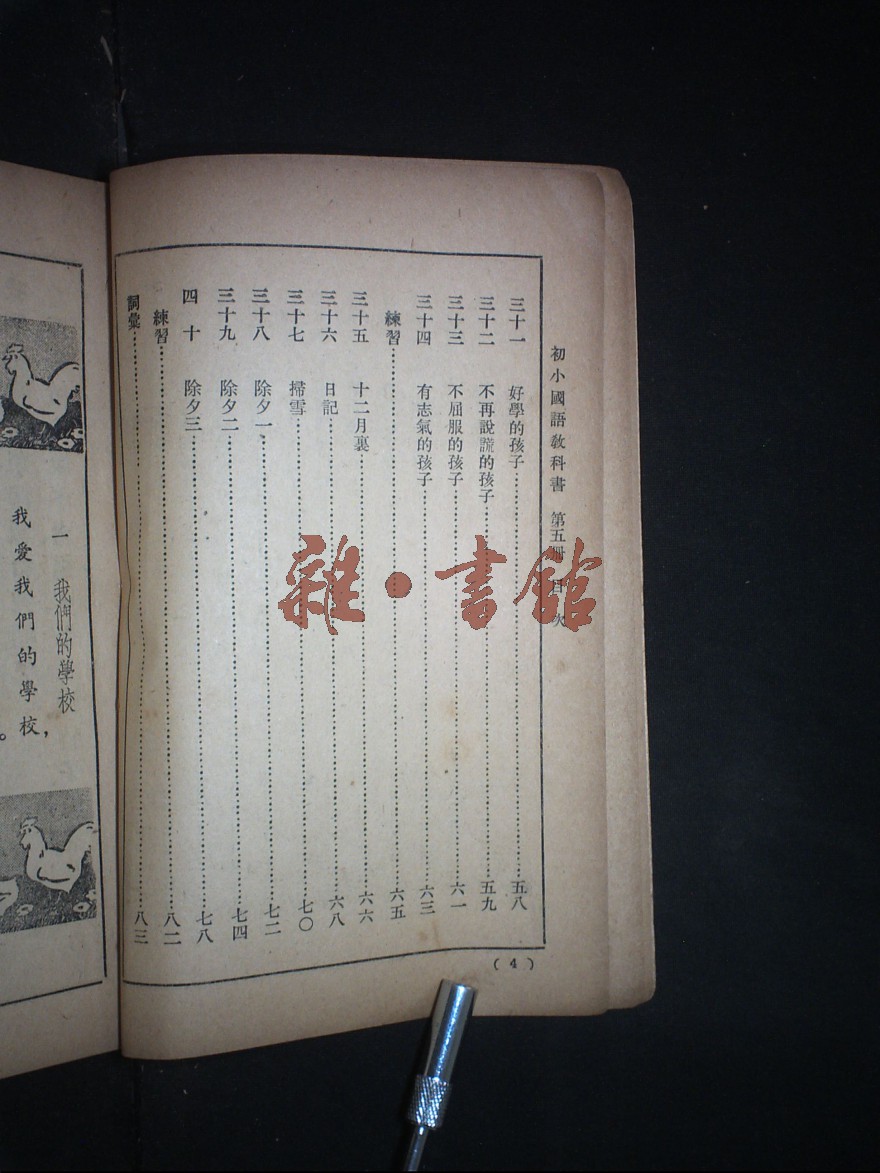 初小國語教科書 第五冊 目次
三十一 好學的孩子……五八
三十二 不再說謊的孩子……五九
三十三 不屈服的孩子……六一
三十四 有志氣的孩子……六三
練習……六五
三十五 十二月裏……六六
三十六 日記……六八
三十七 掃雪……七〇
三十八 除夕一……七二
三十九 除夕二……七四
四十 除夕三……七八
練習……八二
詞彙……八三
(4)
一 我們的學校
我愛我們的學校，
。
雜·書館